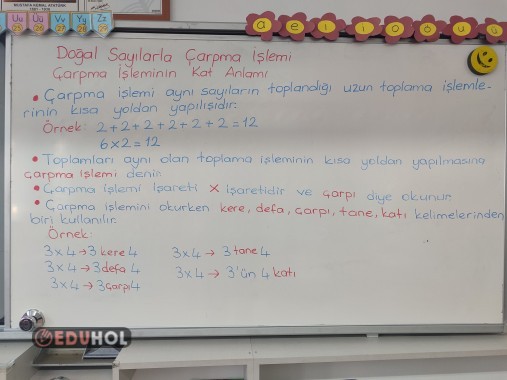 MUSTAFA KEMAL ATATÜRK
1881 - 1938
Uu Üü Vv Yy Zz
25 26 27 28 29
a e ı i o ö u ü
Doğal Sayılarla Çarpma İşlemi
Çarpma İşleminin Kat Anlamı
• Çarpma işlemi aynı sayıların toplandığı uzun toplama işlemle-
rinin kısa yoldan yapılışıdır.
Örnek: 2+2+2+2+2+2=12
6x2=12
• Toplamları aynı olan toplama işleminin kısa yoldan yapılmasına
çarpma işlemi denir.
• Çarpma işlemi işareti x işaretidir ve çarpı diye okunur.
• Çarpma işlemini okurken kere, defa, çarpı, tane, katı kelimelerinden
biri kullanılır.
Örnek:
3x4→3 kere 4 3x4→ 3 tane 4
3x4→3 defa 4 3x4→ 3'ün 4 katı
3x4→3çarpı4
EDUHOL